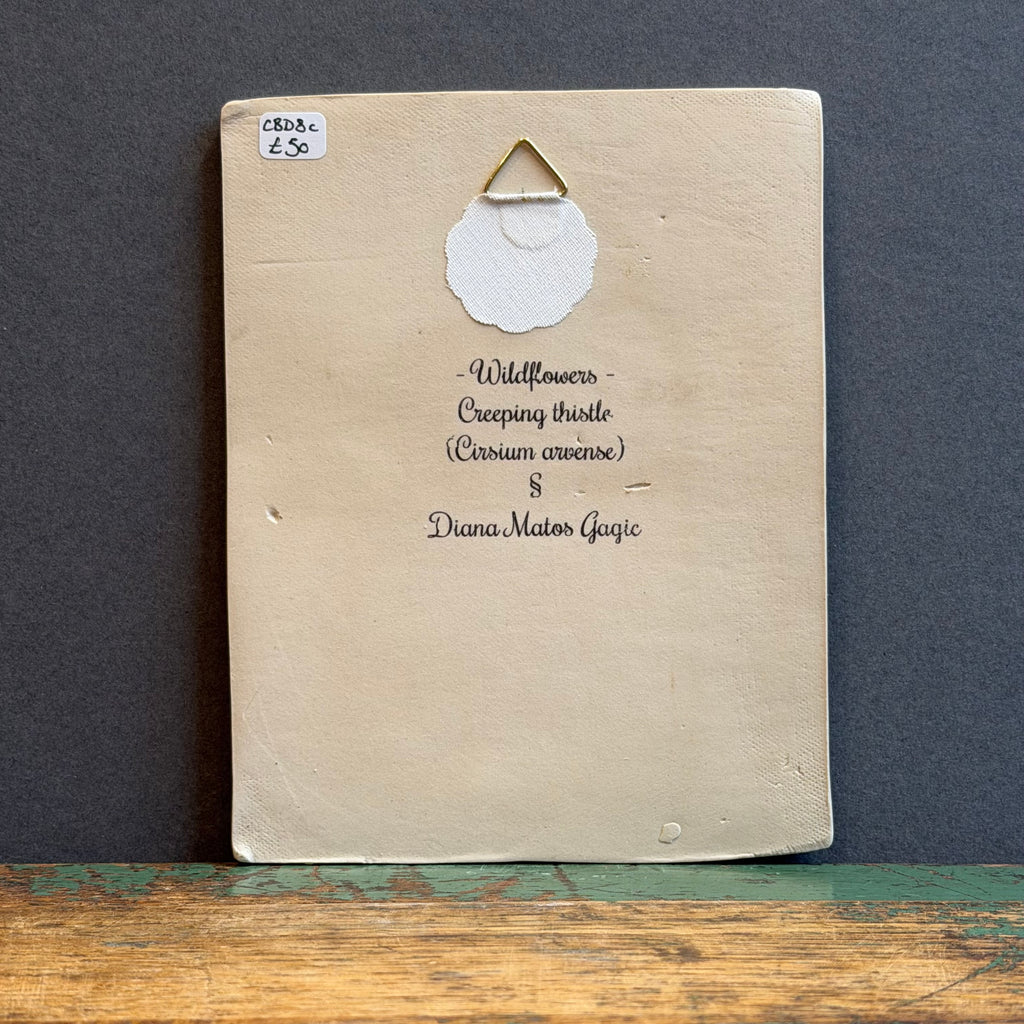 CBD8c
£50
- Wildflowers -
Creeping thistle
(Cirsium arvense)
§
Diana Matos Gagic